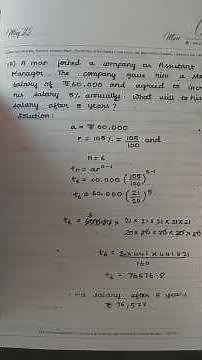 May 22
Mon
A man joined a company as Assistant
Manager. The company gave him a
salary of ₹60,000 and agreed to
his salary 5% annually. What will
salary after 5 years?
Solution:
a = ₹60.000
r = 105% = 105/100 and
n = 6
tn = ar^n-1
t6 = 60.000 (105/100)^6-1
t6 = 60.000 (21/20)^5
21 x 21 x 21 x 21 x 21
20 x 20 x 20 x 20 x 20
t6 = 3 x 441 x 441 x 21
160
t6 = 76576.
His salary after 5 year
₹ 76,577.